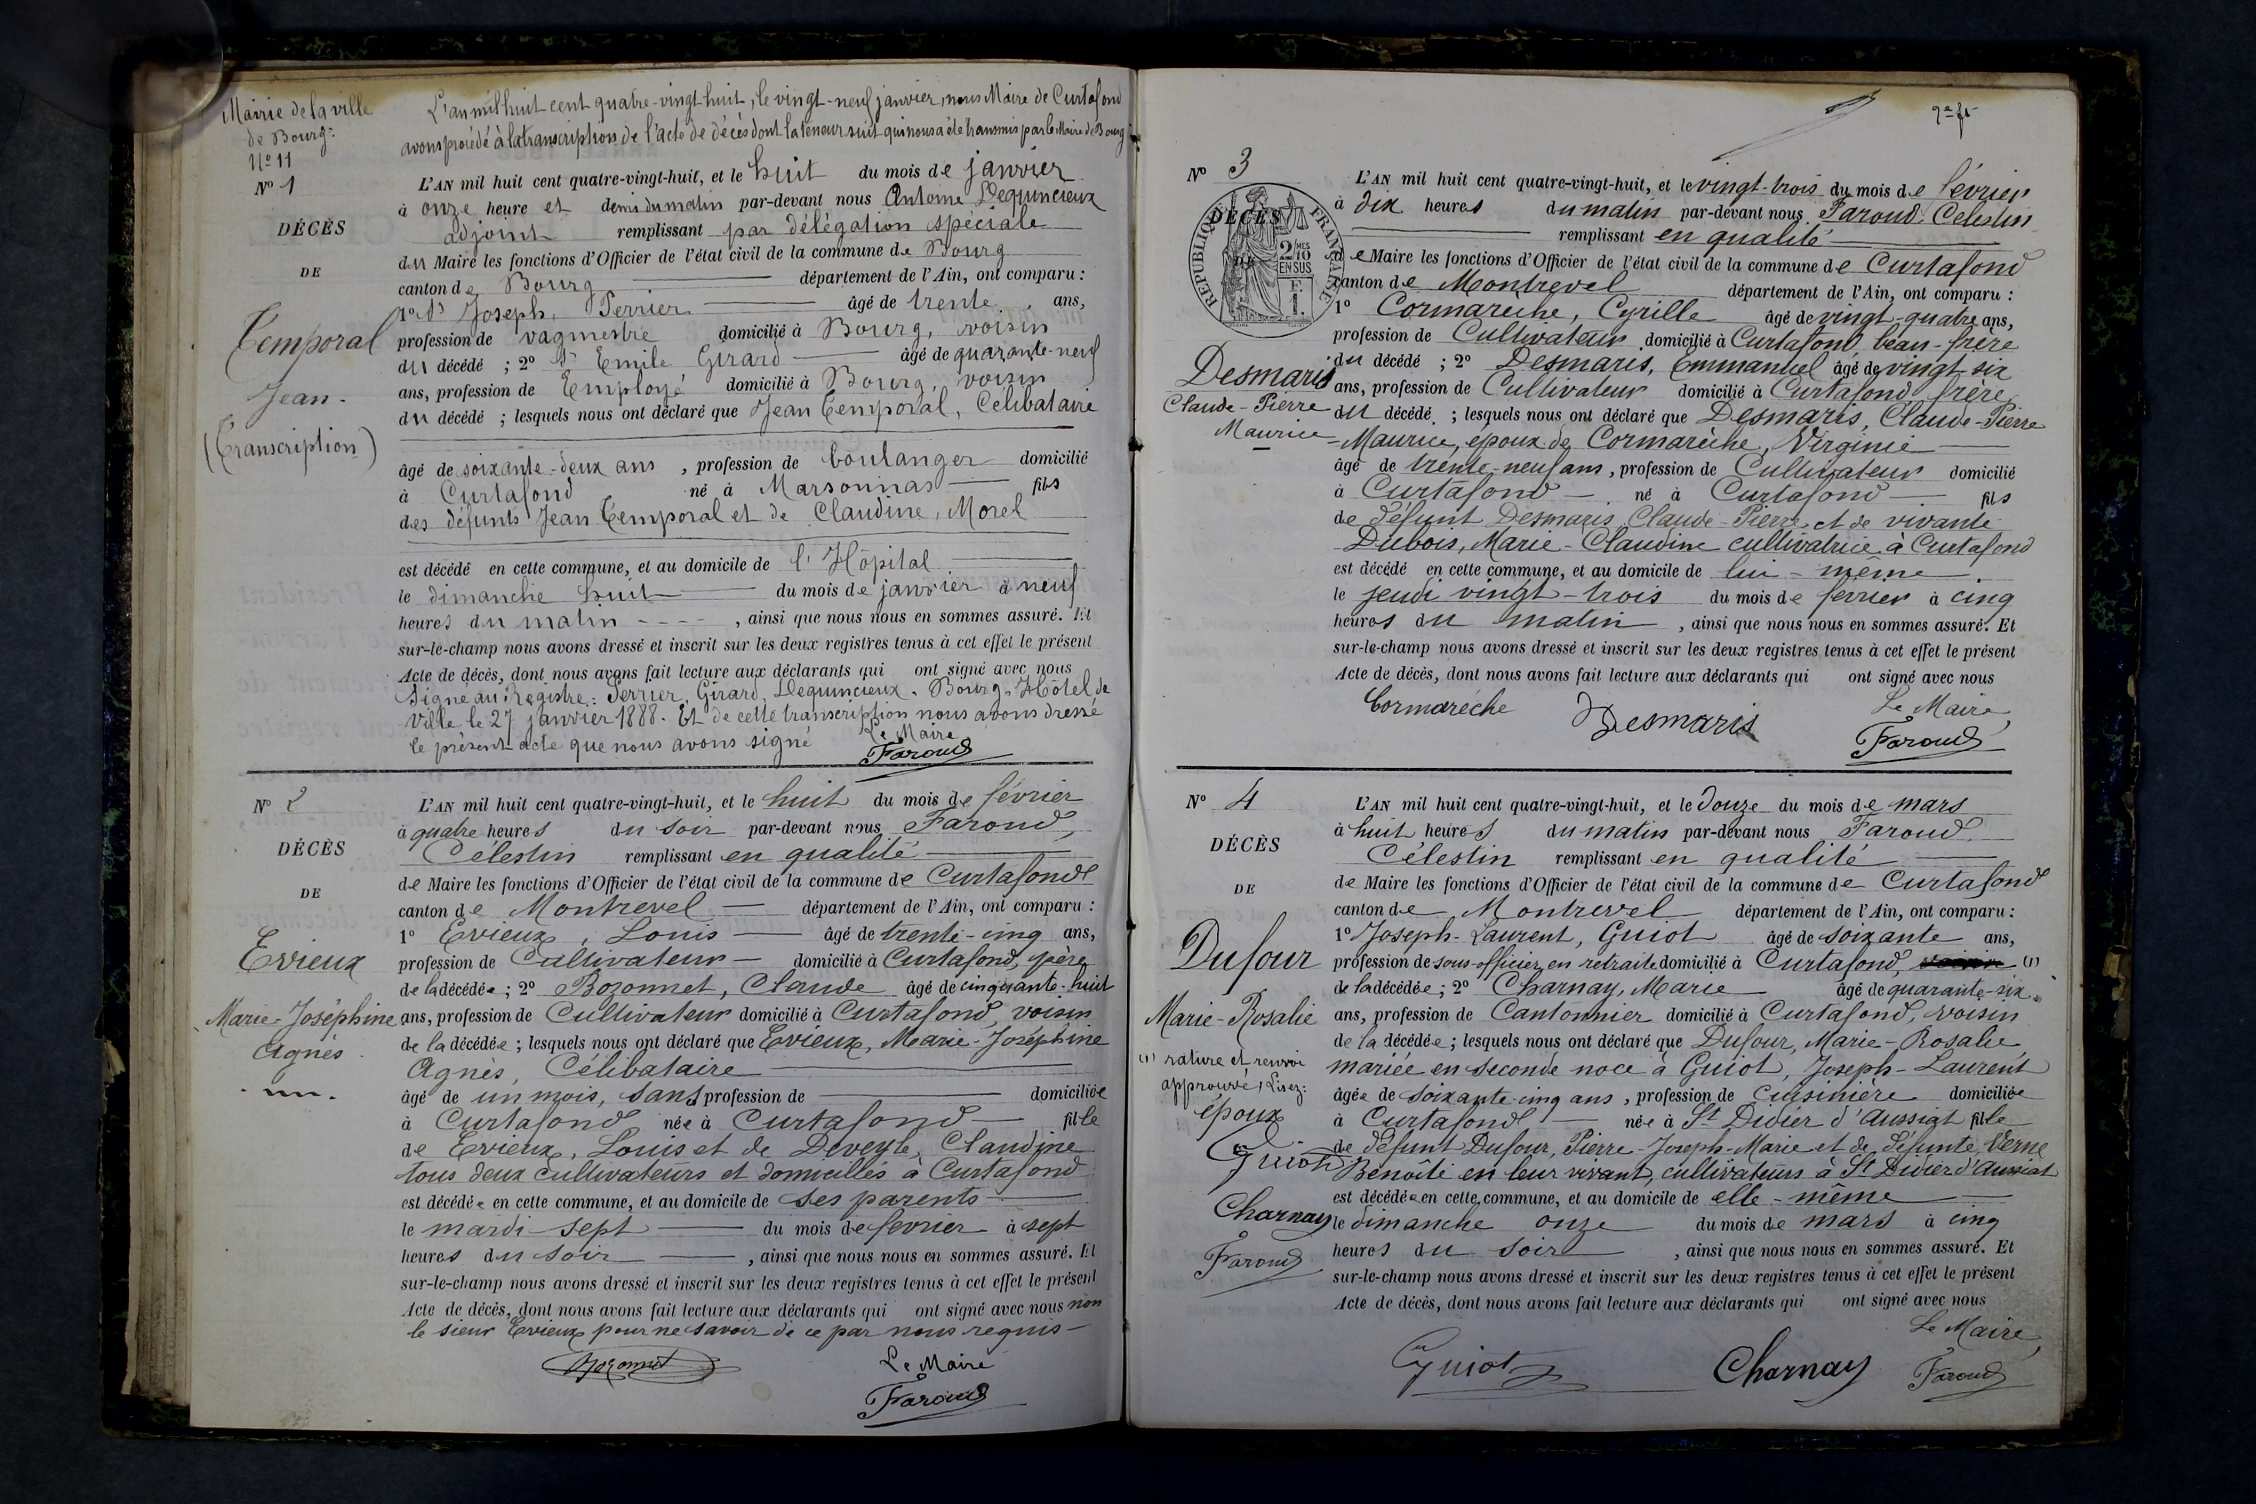 Mairie de la ville
de Bourg:
N° 11
L'an mil huit cent quatre-vingt huit, le vingt-neuf janvier, nous Maire de Curtafond
avons procédé à la transcription de l'acte de décès dont la teneur suit qui nous a été transmis par le Maire de Bourg
N° 1
DÉCÈS
DE
Temporal
Jean.
(Transcription)
L'AN mil huit cent quatre-vingt-huit, et le huit du mois de janvier
à onze heure et demi du matin par-devant nous Antoine Dequincieux
adjoint remplissant par délégation spéciale
du Maire les fonctions d'Officier de l'état civil de la commune de Bourg
canton de Bourg département de l'Ain, ont comparu :
1° Sr Joseph, Perrier âgé de trente ans,
profession de vagmestre domicilié à Bourg, voisin
du décédé ; 2° Sr Emile Girard âgé de quarante-neuf
ans, profession de Employé domicilié à Bourg, voisin
du décédé ; lesquels nous ont déclaré que Jean Temporal, Célibataire
âgé de soixante-deux ans , profession de boulanger domicilié
à Curtafond né à Marsonnas fils
des défunts Jean Temporal et de Claudine, Morel
est décédé en cette commune, et au domicile de l'Hôpital
le dimanche huit du mois de janvier à neuf
heures du matin - - - - , ainsi que nous nous en sommes assuré. Et
sur-le-champ nous avons dressé et inscrit sur les deux registres tenus à cet effet le présent
Acte de décès, dont nous avons fait lecture aux déclarants qui ont signé avec nous
Signé au Registre: Perrier, Girard, Dequincieux. Bourg, Hôtel de
Ville le 27 janvier 1888. Et de cette transcription nous avons dressé
le présent acte que nous avons signé Le Maire
Faroud
N° 2
DÉCÈS
DE
Evieux
Marie-Joséphine
Agnès
L'AN mil huit cent quatre-vingt-huit, et le huit du mois de février
à quatre heures du soir par-devant nous Faroud,
Célestin remplissant en qualité
de Maire les fonctions d'Officier de l'état civil de la commune de Curtafond
canton de Montrevel département de l'Ain, ont comparu :
1° Evieux, Louis âgé de trente-cinq ans,
profession de Cultivateur domicilié à Curtafond, père
de la décédée ; 2° Bozonnet, Claude âgé de cinquante-huit
ans, profession de Cultivateur domicilié à Curtafond, voisin
de la décédée ; lesquels nous ont déclaré que Evieux, Marie-Joséphine
Agnès, Célibataire
âgé de un mois, sans profession de domiciliée
à Curtafond née à Curtafond fille
de Evieux, Louis et de Deveyle, Claudine
tous deux cultivateurs et domiciliés à Curtafond
est décédée en cette commune, et au domicile de ses parents
le mardi sept du mois de février à sept
heures du soir , ainsi que nous nous en sommes assuré. Et
sur-le-champ nous avons dressé et inscrit sur les deux registres tenus à cet effet le présent
Acte de décès, dont nous avons fait lecture aux déclarants qui ont signé avec nous non
le sieur Evieux pour ne savoir de ce par nous requis
Bozonnet Le Maire
Faroud
N° 3
DÉCÈS
DE
RÉPUBLIQUE FRANÇAISE
2 MES
10
EN SUS
Desmaris
Claude-Pierre
Maurice
L'AN mil huit cent quatre-vingt-huit, et le vingt-trois du mois de février
à dix heures du matin par-devant nous Faroud Célestin
remplissant en qualité
de Maire les fonctions d'Officier de l'état civil de la commune de Curtafond
canton de Montrevel département de l'Ain, ont comparu :
1° Cormarèche, Cyrille âgé de vingt-quatre ans,
profession de Cultivateur domicilié à Curtafond, beau-frère
du décédé ; 2° Desmaris, Emmanuel âgé de vingt six
ans, profession de Cultivateur domicilié à Curtafond, frère
du décédé ; lesquels nous ont déclaré que Desmaris, Claude-Pierre
-Maurice, époux de Cormarèche, Virginie
âgé de trente-neuf ans, profession de Cultivateur domicilié
à Curtafond né à Curtafond fils
de défunt Desmaris, Claude-Pierre et de vivante
Dubois, Marie-Claudine cultivatrice à Curtafond
est décédé en cette commune, et au domicile de lui-même
le jeudi vingt-trois du mois de février à cinq
heures du matin , ainsi que nous nous en sommes assuré. Et
sur-le-champ nous avons dressé et inscrit sur les deux registres tenus à cet effet le présent
Acte de décès, dont nous avons fait lecture aux déclarants qui ont signé avec nous
Cormaréche Desmaris Le Maire
Faroud
N° 4
DÉCÈS
DE
Dufour
Marie-Rosalie
(1) rature et renvoi
approuvé, Lisez:
époux
Guiot
Charnay
Faroud
L'AN mil huit cent quatre-vingt-huit, et le douze du mois de mars
à huit heures du matin par-devant nous Faroud
Célestin remplissant en qualité
de Maire les fonctions d'Officier de l'état civil de la commune de Curtafond
canton de Montrevel département de l'Ain, ont comparu :
1° Joseph-Laurent, Guiot âgé de soixante ans,
profession de sous-officier en retraite domicilié à Curtafond, (1)
de la décédée ; 2° Charnay, Marie âgé de quarante-six
ans, profession de Cantonnier domicilié à Curtafond, voisin
de la décédée ; lesquels nous ont déclaré que Dufour, Marie-Rosalie,
mariée en seconde noce à Guiot, Joseph-Laurent
âgée de soixante-cinq ans , profession de Cuisinière domiciliée
à Curtafond née à St Didier d'Aussiat fille
de défunt Dufour, Pierre-Joseph-Marie et de défunte Verne
Benoîte en leur vivant, cultivateurs à St Didier d'Aussiat
est décédée en cette commune, et au domicile de elle-même
le dimanche onze du mois de mars à cinq
heures du soir , ainsi que nous nous en sommes assuré. Et
sur-le-champ nous avons dressé et inscrit sur les deux registres tenus à cet effet le présent
Acte de décès, dont nous avons fait lecture aux déclarants qui ont signé avec nous
Le Maire
Guiot Charnay Faroud